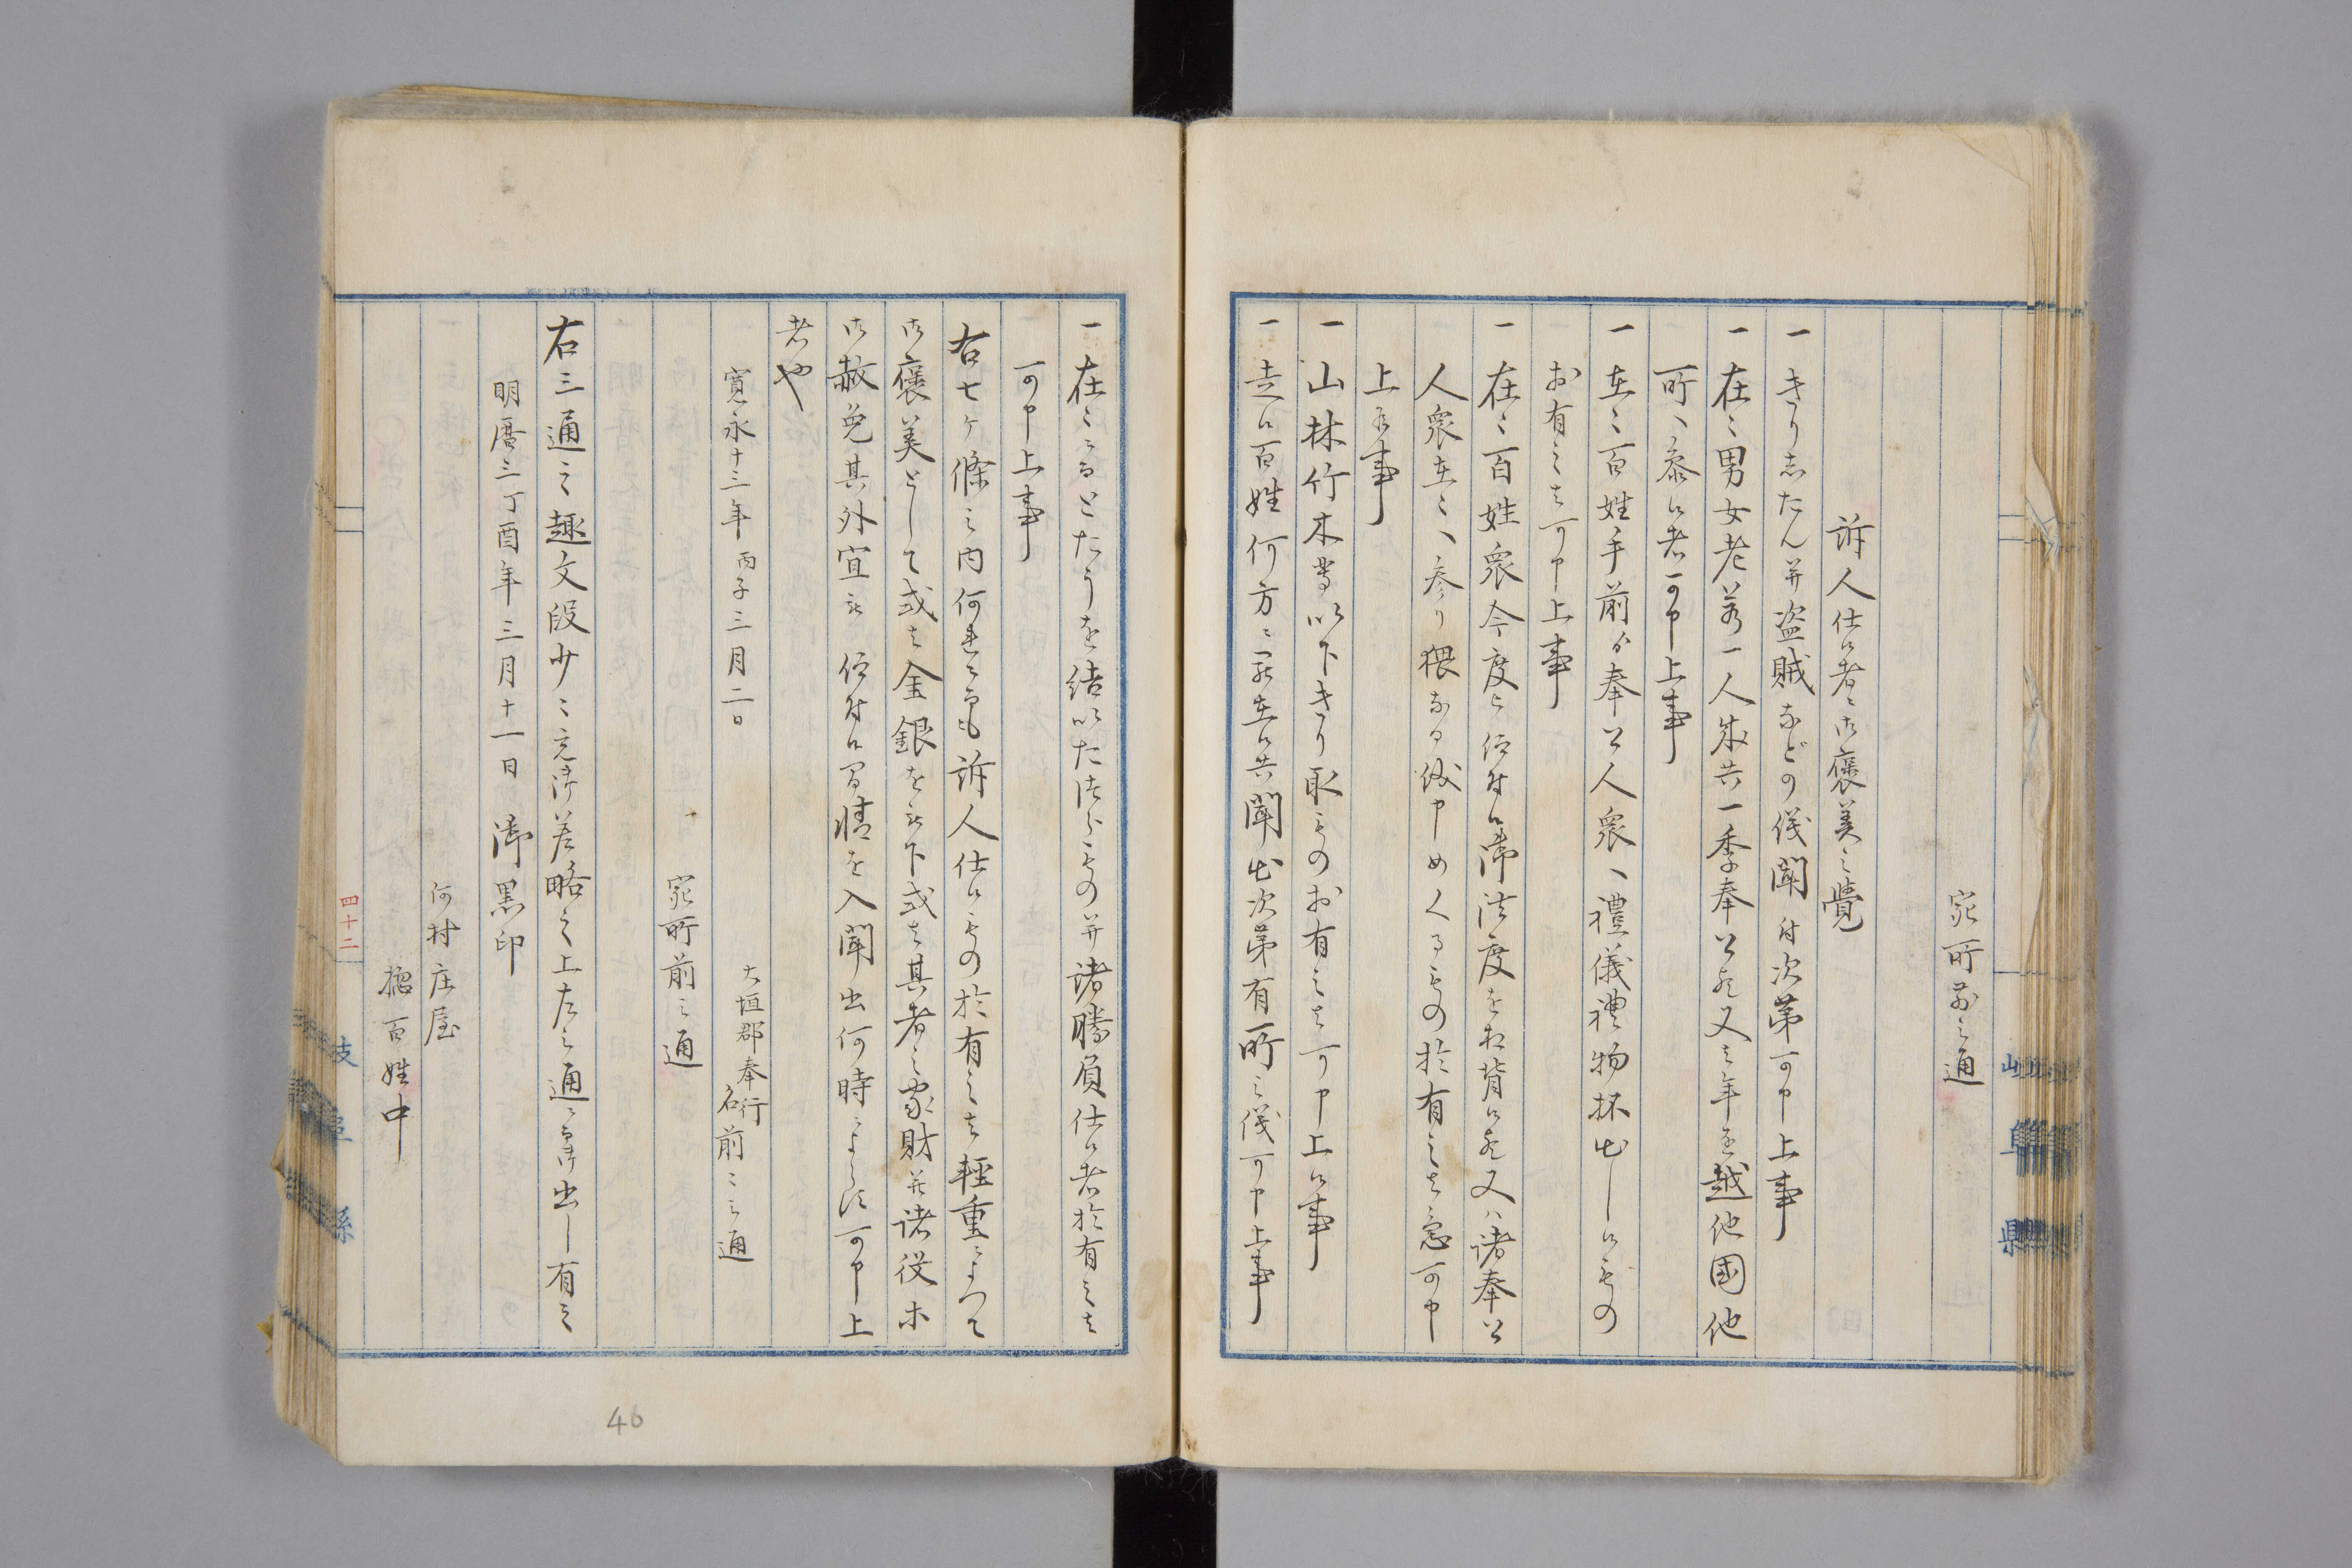 宛所前之通
訴人仕候者ニ御褒美之覺
一きりしたん并盗賊などの儀聞付次第可申上事
一在々男女老若一人成共一季奉公或又ハ年を越他国他
所へ参候者可申上事
一在々百姓手前ゟ奉公人衆へ禮儀禮物抔出し候もの
於有之ハ可申上事
一在々百姓衆今度被仰付候御法度を相背候或又ハ諸奉公
人衆在々へ参り猥なる儀申めくるもの於有之ハ急可申
上候事
一山林竹木等以下きり取もの於有之ハ可申上候事
一走候百姓何方ニ罷在候共聞出次第有所之儀可申上事
一在々ニ而とたうを結いたつらもの并諸勝負仕候者於有之ハ
可申上事
右七ヶ條之内何連ニ而も訴人仕候もの於有之ハ輕重ニよつて
御褒美として或ハ金銀を被下或ハ其者之家財并諸役等
御赦免其外宜被仰付候間精を入聞出何時ニよらす可申上
者也
寛永十三年丙子三月二日
大垣郡奉行
名前ニ之通
宛所前之通
右三通之趣文段少々充御差略之上左之通ニ御出し有之
明暦三丁酉年三月十一日 御黒印
何村庄屋
惣百姓中
四十二
岐阜縣
岐阜県
46